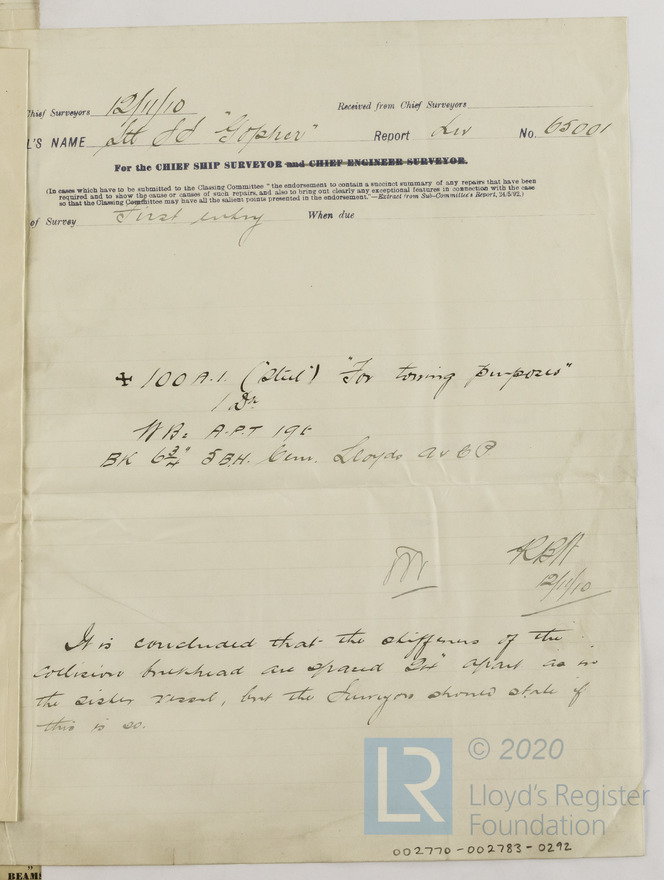 Chief Surveyors 12/11/10 Received from Chief Surveyors
L'S NAME Stl SS "Gopher" Report Liv No. 65001
For the CHIEF SHIP SURVEYOR and CHIEF ENGINEER SURVEYOR.
(In cases which have to be submitted to the Classing Committee "the endorsement to contain a succinct summary of any repairs that have been
required and to show the cause or causes of such repairs, and also to bring out clearly any exceptional features in connection with the case
so that the Classing Committee may have all the salient points presented in the endorsement."—Extract from Sub-Committee's Report, 24/5/92.)
of Survey First entry When due
100 A.1. (Steel) "For towing purposes"
1 Dk
WB= A.P.T 19t
BK 6 3/4" 5 B.H. Cem. Lloyds A & C P
12/11/10
It is concluded that the stiffeners of the
collision bulkhead are spaced 24" apart as in
the sister vessel, but the Surveyors should state if
this is so.
LR © 2020
Lloyd's Register
Foundation
002770-002783-0292
BEAM